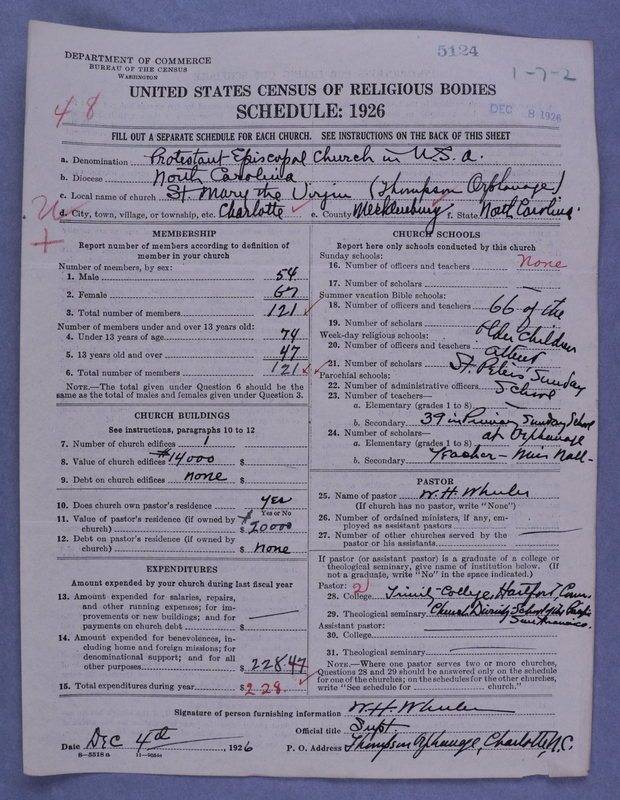 5124
DEPARTMENT OF COMMERCE
BUREAU OF THE CENSUS
WASHINGTON
1-7-2
UNITED STATES CENSUS OF RELIGIOUS BODIES
SCHEDULE: 1926
DEC 8 1926
48
FILL OUT A SEPARATE SCHEDULE FOR EACH CHURCH. SEE INSTRUCTIONS ON THE BACK OF THIS SHEET
a. Denomination Protestant Episcopal Church in U.S.a.
b. Diocese North Carolina
c. Local name of church St. Mary the Virgin (Thompson Orphanage)
d. City, town, village, or township, etc. Charlotte e. County Mecklenburg f. State North Carolina
MEMBERSHIP
Report number of members according to definition of
member in your church
Number of members, by sex:
1. Male 54
2. Female 67
3. Total number of members 121
Number of members under and over 13 years old:
4. Under 13 years of age 74
5. 13 years old and over 47
6. Total number of members 121
NOTE.—The total given under Question 6 should be the
same as the total of males and females given under Question 3.
CHURCH BUILDINGS
See instructions, paragraphs 10 to 12
7. Number of church edifices 1
8. Value of church edifices #14000 $
9. Debt on church edifices none $
10. Does church own pastor's residence yes
Yes or No
11. Value of pastor's residence (if owned by
church) $ 20000
12. Debt on pastor's residence (if owned by
church) $ none
EXPENDITURES
Amount expended by your church during last fiscal year
13. Amount expended for salaries, repairs,
and other running expenses; for im-
provements or new buildings; and for
payments on church debt $
14. Amount expended for benevolences, in-
cluding home and foreign missions; for
denominational support; and for all
other purposes $ 228 47
15. Total expenditures during year $ 228.
CHURCH SCHOOLS
Report here only schools conducted by this church
Sunday schools:
16. Number of officers and teachers None
17. Number of scholars
Summer vacation Bible schools:
18. Number of officers and teachers 66 of the
19. Number of scholars older children
Week-day religious schools:
20. Number of officers and teachers attend
21. Number of scholars St. Peters' Sunday
Parochial schools:
22. Number of administrative officers School
23. Number of teachers—
a. Elementary (grades 1 to 8)
b. Secondary 39 in Primary Sunday School
24. Number of scholars—
a. Elementary (grades 1 to 8) at Orphanage
b. Secondary Teacher - Miss
PASTOR
25. Name of pastor W. H. Wheeler
(If church has no pastor, write "None")
26. Number of ordained ministers, if any, em-
ployed as assistant pastors
27. Number of other churches served by the
pastor or his assistants
If pastor (or assistant pastor) is a graduate of a college or
theological seminary, give name of institution below. (If
not a graduate, write "No" in the space indicated.)
Pastor: 2
28. College Trinity College, Hartford, Conn.
29. Theological seminary Church Divinity School of the Pacific
San Francisco.
Assistant pastor:
30. College
31. Theological seminary
NOTE.—Where one pastor serves two or more churches,
Questions 28 and 29 should be answered only on the schedule
for one of the churches; on the schedules for the other churches,
write "See schedule for church."
Signature of person furnishing information W. H. Wheeler
Official title Supt.
Date Dec 4th, 1926 P. O. Address Thompson Orphanage, Charlotte, N.C.
8—5518 a